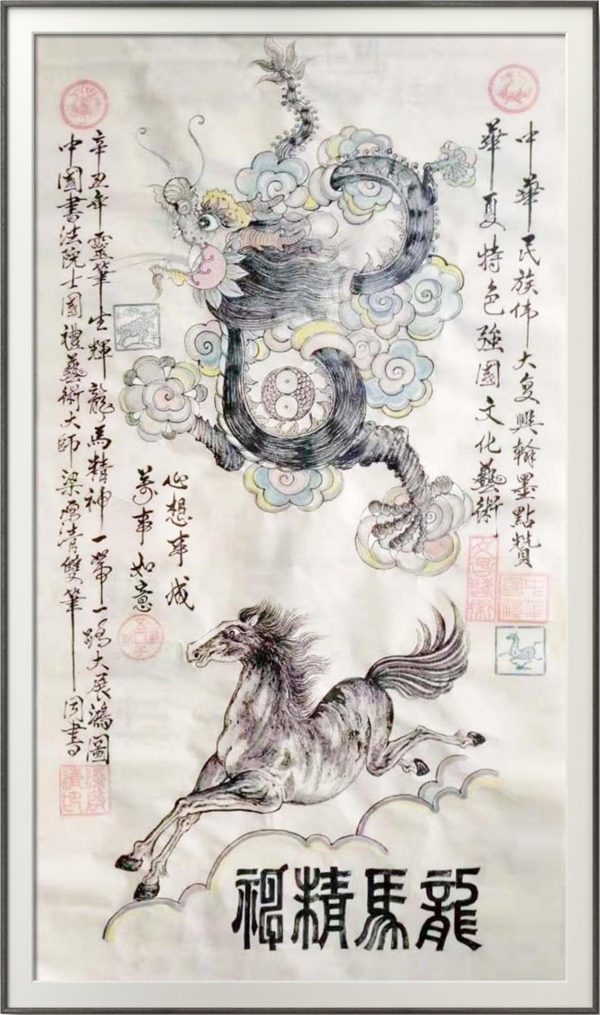 中華民族伟大复興翰墨點贊
華夏特色強國文化藝術
心想事成
萬事如意
辛丑年靈筆生輝龍馬精神一帶一路大展鴻圖
中國書法院士國禮藝術大師梁清雙筆同書
龍馬精神